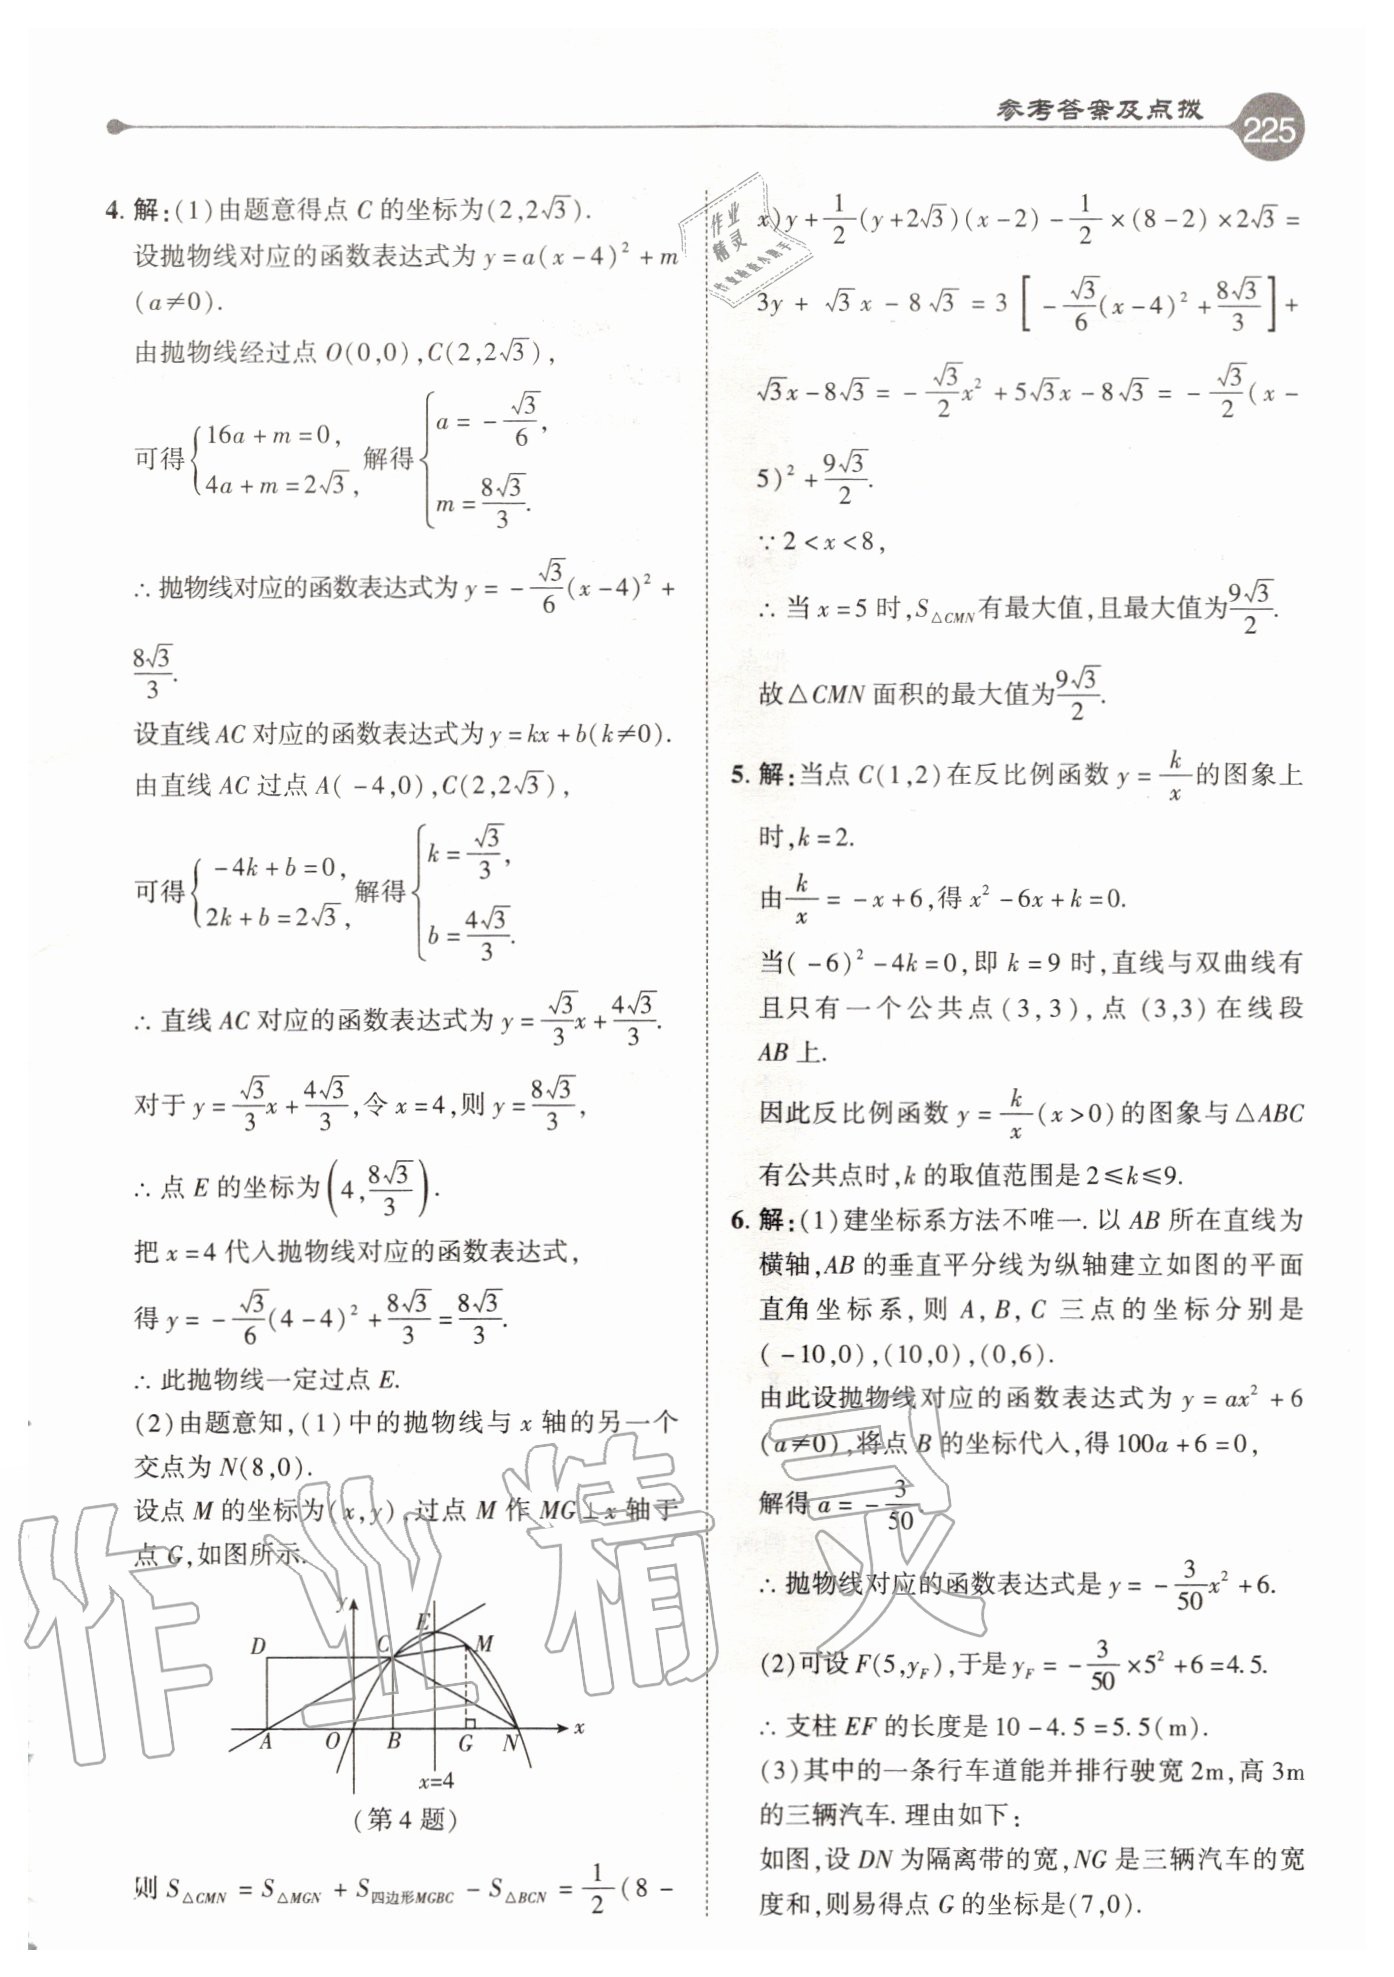 参考答案及点拨
225
4. 解:(1)由题意得点 C 的坐标为(2,2√3).
设抛物线对应的函数表达式为 y=a(x-4)²+m
(a≠0).
由抛物线经过点 O(0,0),C(2,2√3),
可得{16a+m=0, 4a+m=2√3, 解得{a=-√3/6, m=8√3/3.
∴ 抛物线对应的函数表达式为 y=-√3/6(x-4)²+
8√3/3.
设直线 AC 对应的函数表达式为 y=kx+b(k≠0).
由直线 AC 过点 A(-4,0),C(2,2√3),
可得{-4k+b=0, 2k+b=2√3, 解得{k=√3/3, b=4√3/3.
∴ 直线 AC 对应的函数表达式为 y=√3/3x+4√3/3.
对于 y=√3/3x+4√3/3,令 x=4,则 y=8√3/3,
∴ 点 E 的坐标为(4,8√3/3).
把 x=4 代入抛物线对应的函数表达式,
得 y=-√3/6(4-4)²+8√3/3=8√3/3.
∴ 此抛物线一定过点 E.
(2)由题意知,(1)中的抛物线与 x 轴的另一个
交点为 N(8,0).
设点 M 的坐标为(x,y),过点 M 作 MG⊥x 轴于
点 G,如图所示.
y
E
D
C
M
A
O
B
G
N
x
x=4
(第4题)
则 S△CMN=S△MGN+S四边形MGBC-S△BCN=1/2(8-
x)y+1/2(y+2√3)(x-2)-1/2×(8-2)×2√3=
3y+√3x-8√3=3[-√3/6(x-4)²+8√3/3]+
√3x-8√3=-√3/2x²+5√3x-8√3=-√3/2(x-
5)²+9√3/2.
∵ 2<x<8,
∴ 当 x=5 时,S△CMN有最大值,且最大值为9√3/2.
故△CMN 面积的最大值为9√3/2.
5. 解:当点 C(1,2)在反比例函数 y=k/x的图象上
时,k=2.
由k/x=-x+6,得 x²-6x+k=0.
当(-6)²-4k=0,即 k=9 时,直线与双曲线有
且只有一个公共点(3,3),点(3,3)在线段
AB 上.
因此反比例函数 y=k/x(x>0)的图象与△ABC
有公共点时,k 的取值范围是 2≤k≤9.
6. 解:(1)建坐标系方法不唯一. 以 AB 所在直线为
横轴,AB 的垂直平分线为纵轴建立如图的平面
直角坐标系,则 A,B,C 三点的坐标分别是
(-10,0),(10,0),(0,6).
由此设抛物线对应的函数表达式为 y=ax²+6
(a≠0),将点 B 的坐标代入,得100a+6=0,
解得 a=-3/50
∴ 抛物线对应的函数表达式是 y=-3/50x²+6.
(2)可设 F(5,yF),于是 yF=-3/50×5²+6=4.5.
∴ 支柱 EF 的长度是 10-4.5=5.5(m).
(3)其中的一条行车道能并排行驶宽2m,高3m
的三辆汽车. 理由如下:
如图,设 DN 为隔离带的宽,NG 是三辆汽车的宽
度和,则易得点 G 的坐标是(7,0).
作业
精灵
作业精灵